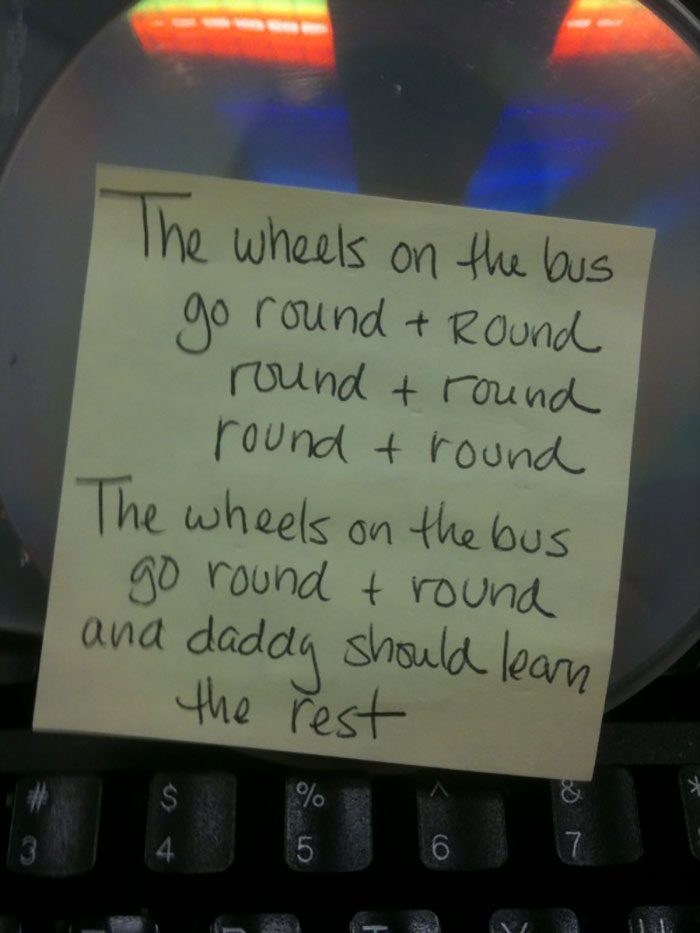 The wheels on the bus
go round + Round
round + round
round + round
The wheels on the bus
go round + round
and daddy should learn
the rest
# $ % ^ & *
3 4 5 6 7